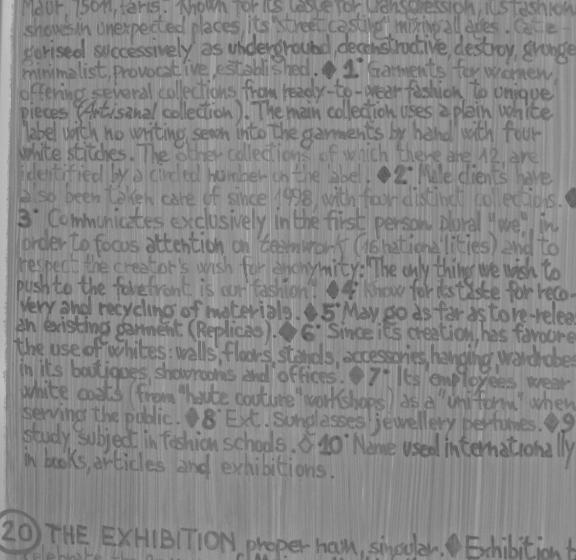 Maur, 75011, Paris. Known for its taste for transgression, its fashion
shows in unexpected places, its "street casting" mixing all ages. Cate
gorised successively as underground, deconstructive, destroy, grunge
minimalist, provocative, established. ◆ 1° Garments for women,
offering several collections from ready-to-wear fashion to unique
pieces (Artisanal collection). The main collection uses a plain white
label with no writing, sewn into the garments by hand with four
white stitches. The other collections of which there are 12, are
identified by a circled number on the label. ◆ 2° Male clients have
also been taken care of since 1998, with four distinct collections. ◆
3° Communicates exclusively in the first person plural "we", in
order to focus attention on teamwork (16 nationalities) and to
respect the creator's wish for anonymity: "The only thing we wish to
push to the forefront is our fashion" ◆ 4° Know for its taste for reco-
very and recycling of materials. ◆ 5° May go as far as to re-relea
an existing garment (Replicas). ◆ 6° Since its creation, has favoure
the use of whites: walls, floors, stands, accessories, hanging, wardrobes
in its boutiques, showrooms and offices. ◆ 7° Its employees wear
white coats (from "haute couture" workshops) as a "uniform" when
serving the public. ◆ 8° Ext. Sunglasses jewellery perfumes. ◆ 9
study subject in fashion schools. ◇ 10° Name used internationally
in books, articles and exhibitions.
20 THE EXHIBITION proper noun, singular. ◆ Exhibition t